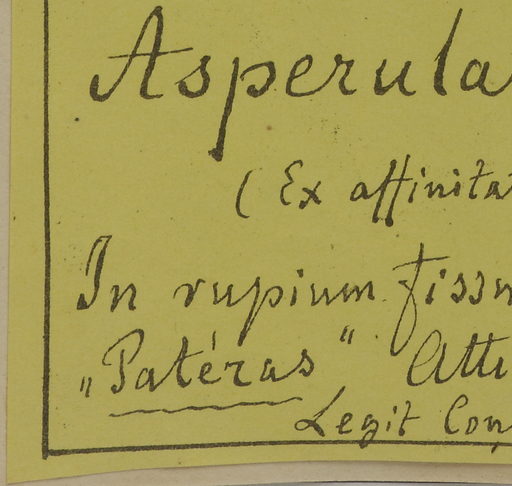 Asperula
( Ex affinitat
In rupium fissu
„Patéras" Atti
Legit Con